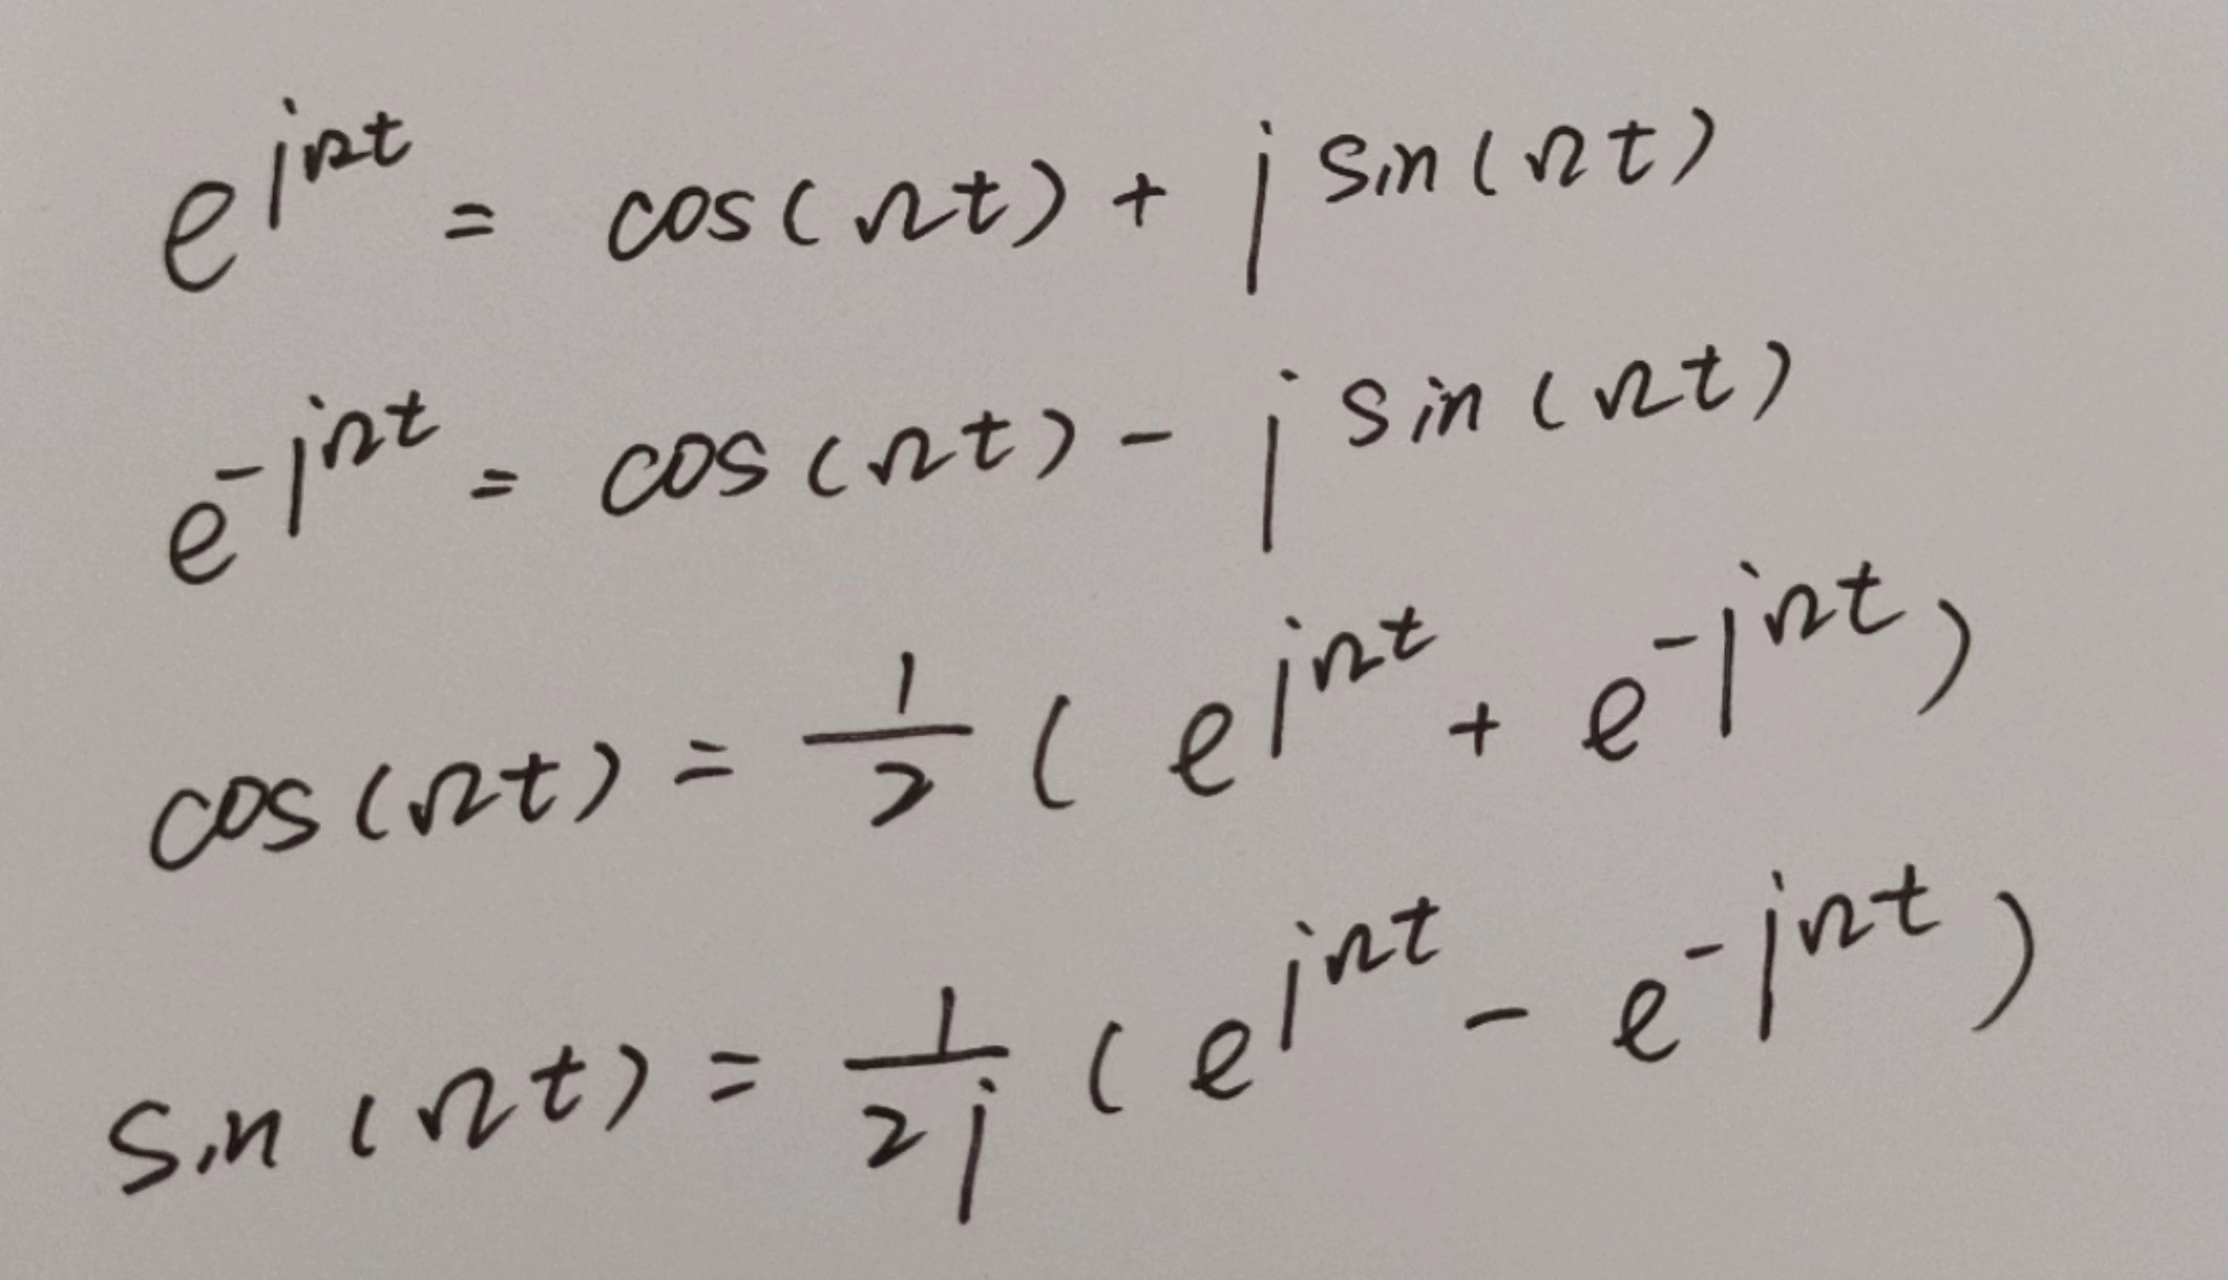 e^{jΩt} = cos(Ωt) + j sin(Ωt)
e^{-jΩt} = cos(Ωt) - j sin(Ωt)
cos(Ωt) = \frac{1}{2} ( e^{jΩt} + e^{-jΩt} )
sin(Ωt) = \frac{1}{2j} ( e^{jΩt} - e^{-jΩt} )